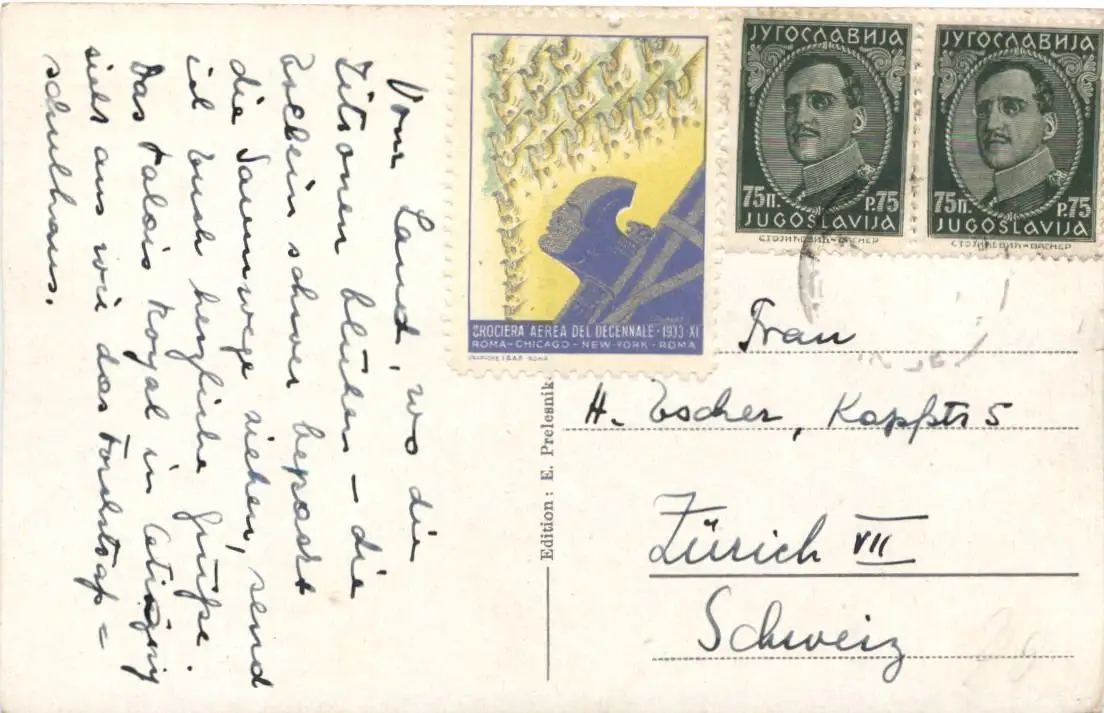 Vom Land, wo die
Zitronen blühen – die
Eselein schwer bepackt
die Saumwege ziehen, send
ich Euch herzliche Grüße.
Das Palais Royal in
sieht aus wie das
schulhaus.
CROCIERA AEREA DEL DECENNALE · 1933 · XI
ROMA–CHICAGO – NEW-YORK – ROMA
ЈУГОСЛАВИЈА
75П. P.75
JUGOSLAVIJA
СТОЈИЋЕВИЋ–ВАГНЕР
ЈУГОСЛАВИЈА
75П. P.75
JUGOSLAVIJA
СТОЈИЋЕВИЋ–ВАГНЕР
Edition: E. Prelesnik
Frau
H. Escher, Kappstr 5
Zürich VII
Schweiz